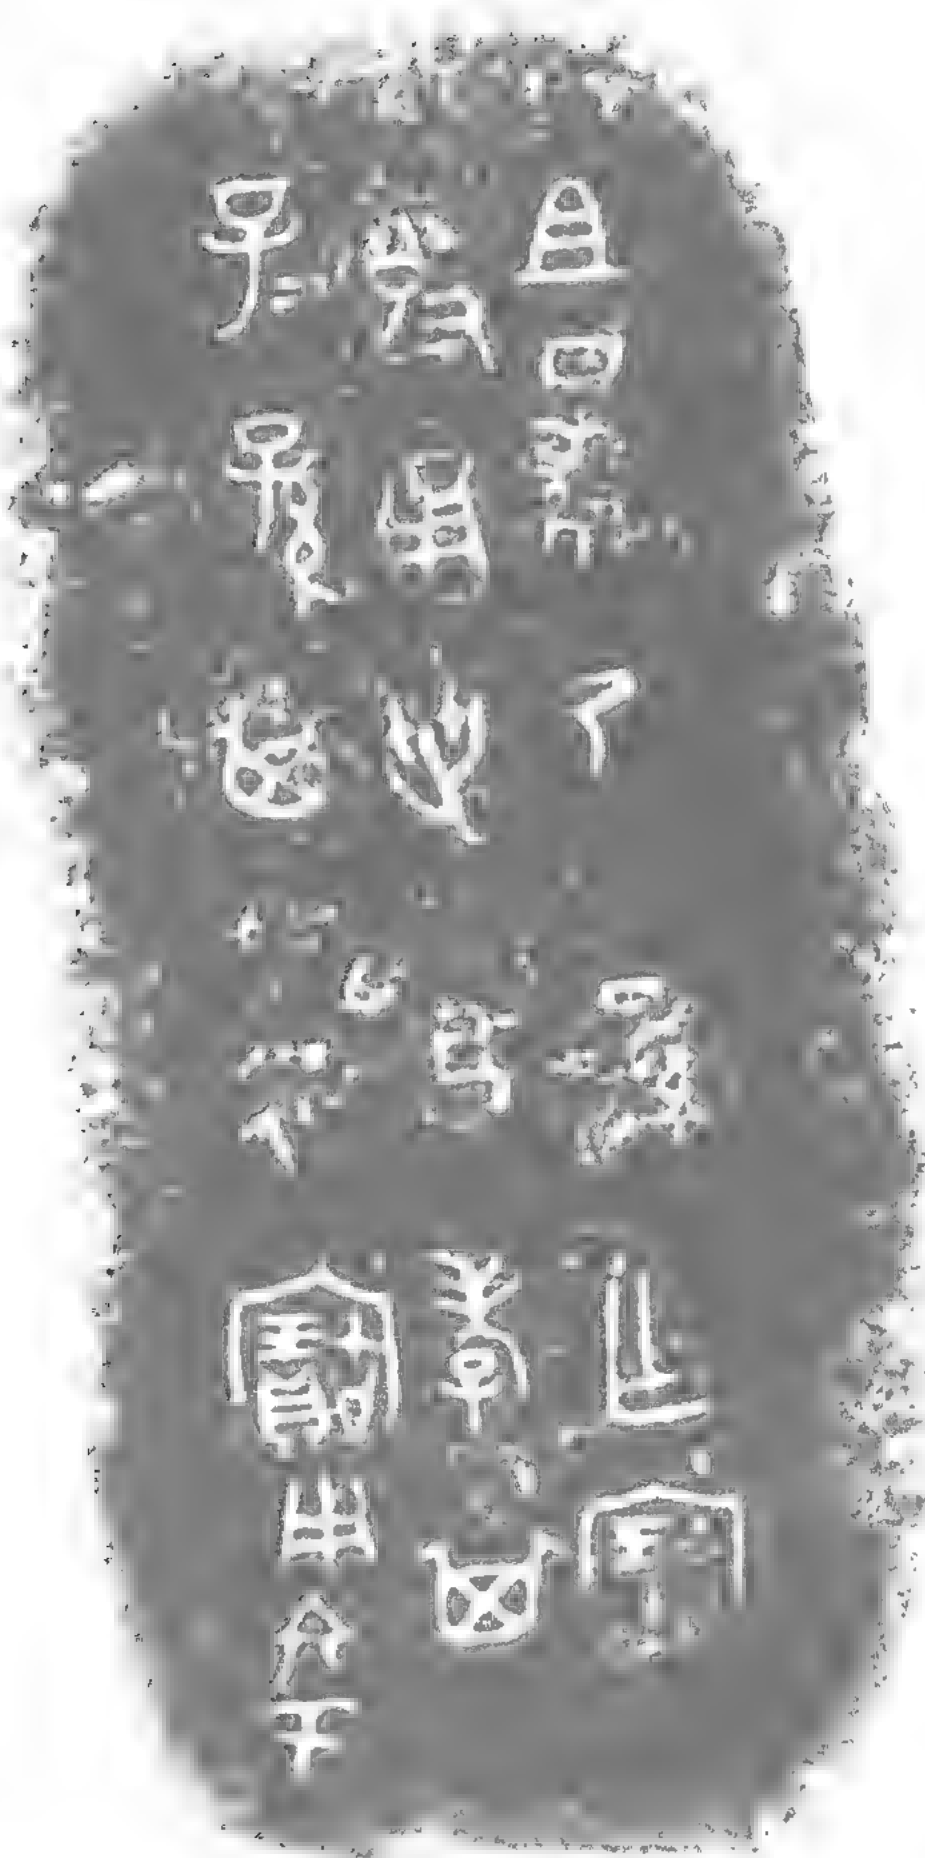 且日庚乃孫乍寶
簋用世享孝其
子＝孫其永寶用